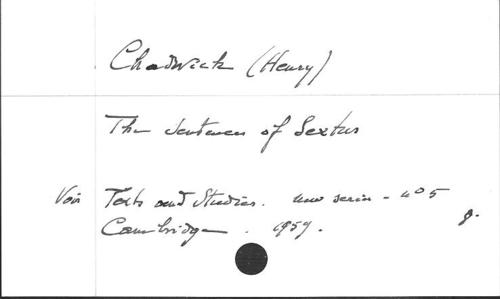 Chadwick (Henry)
The Sentences of Sextus
Voir Texts and Studies. new series - n° 5
Cambridge. 1959. 8.